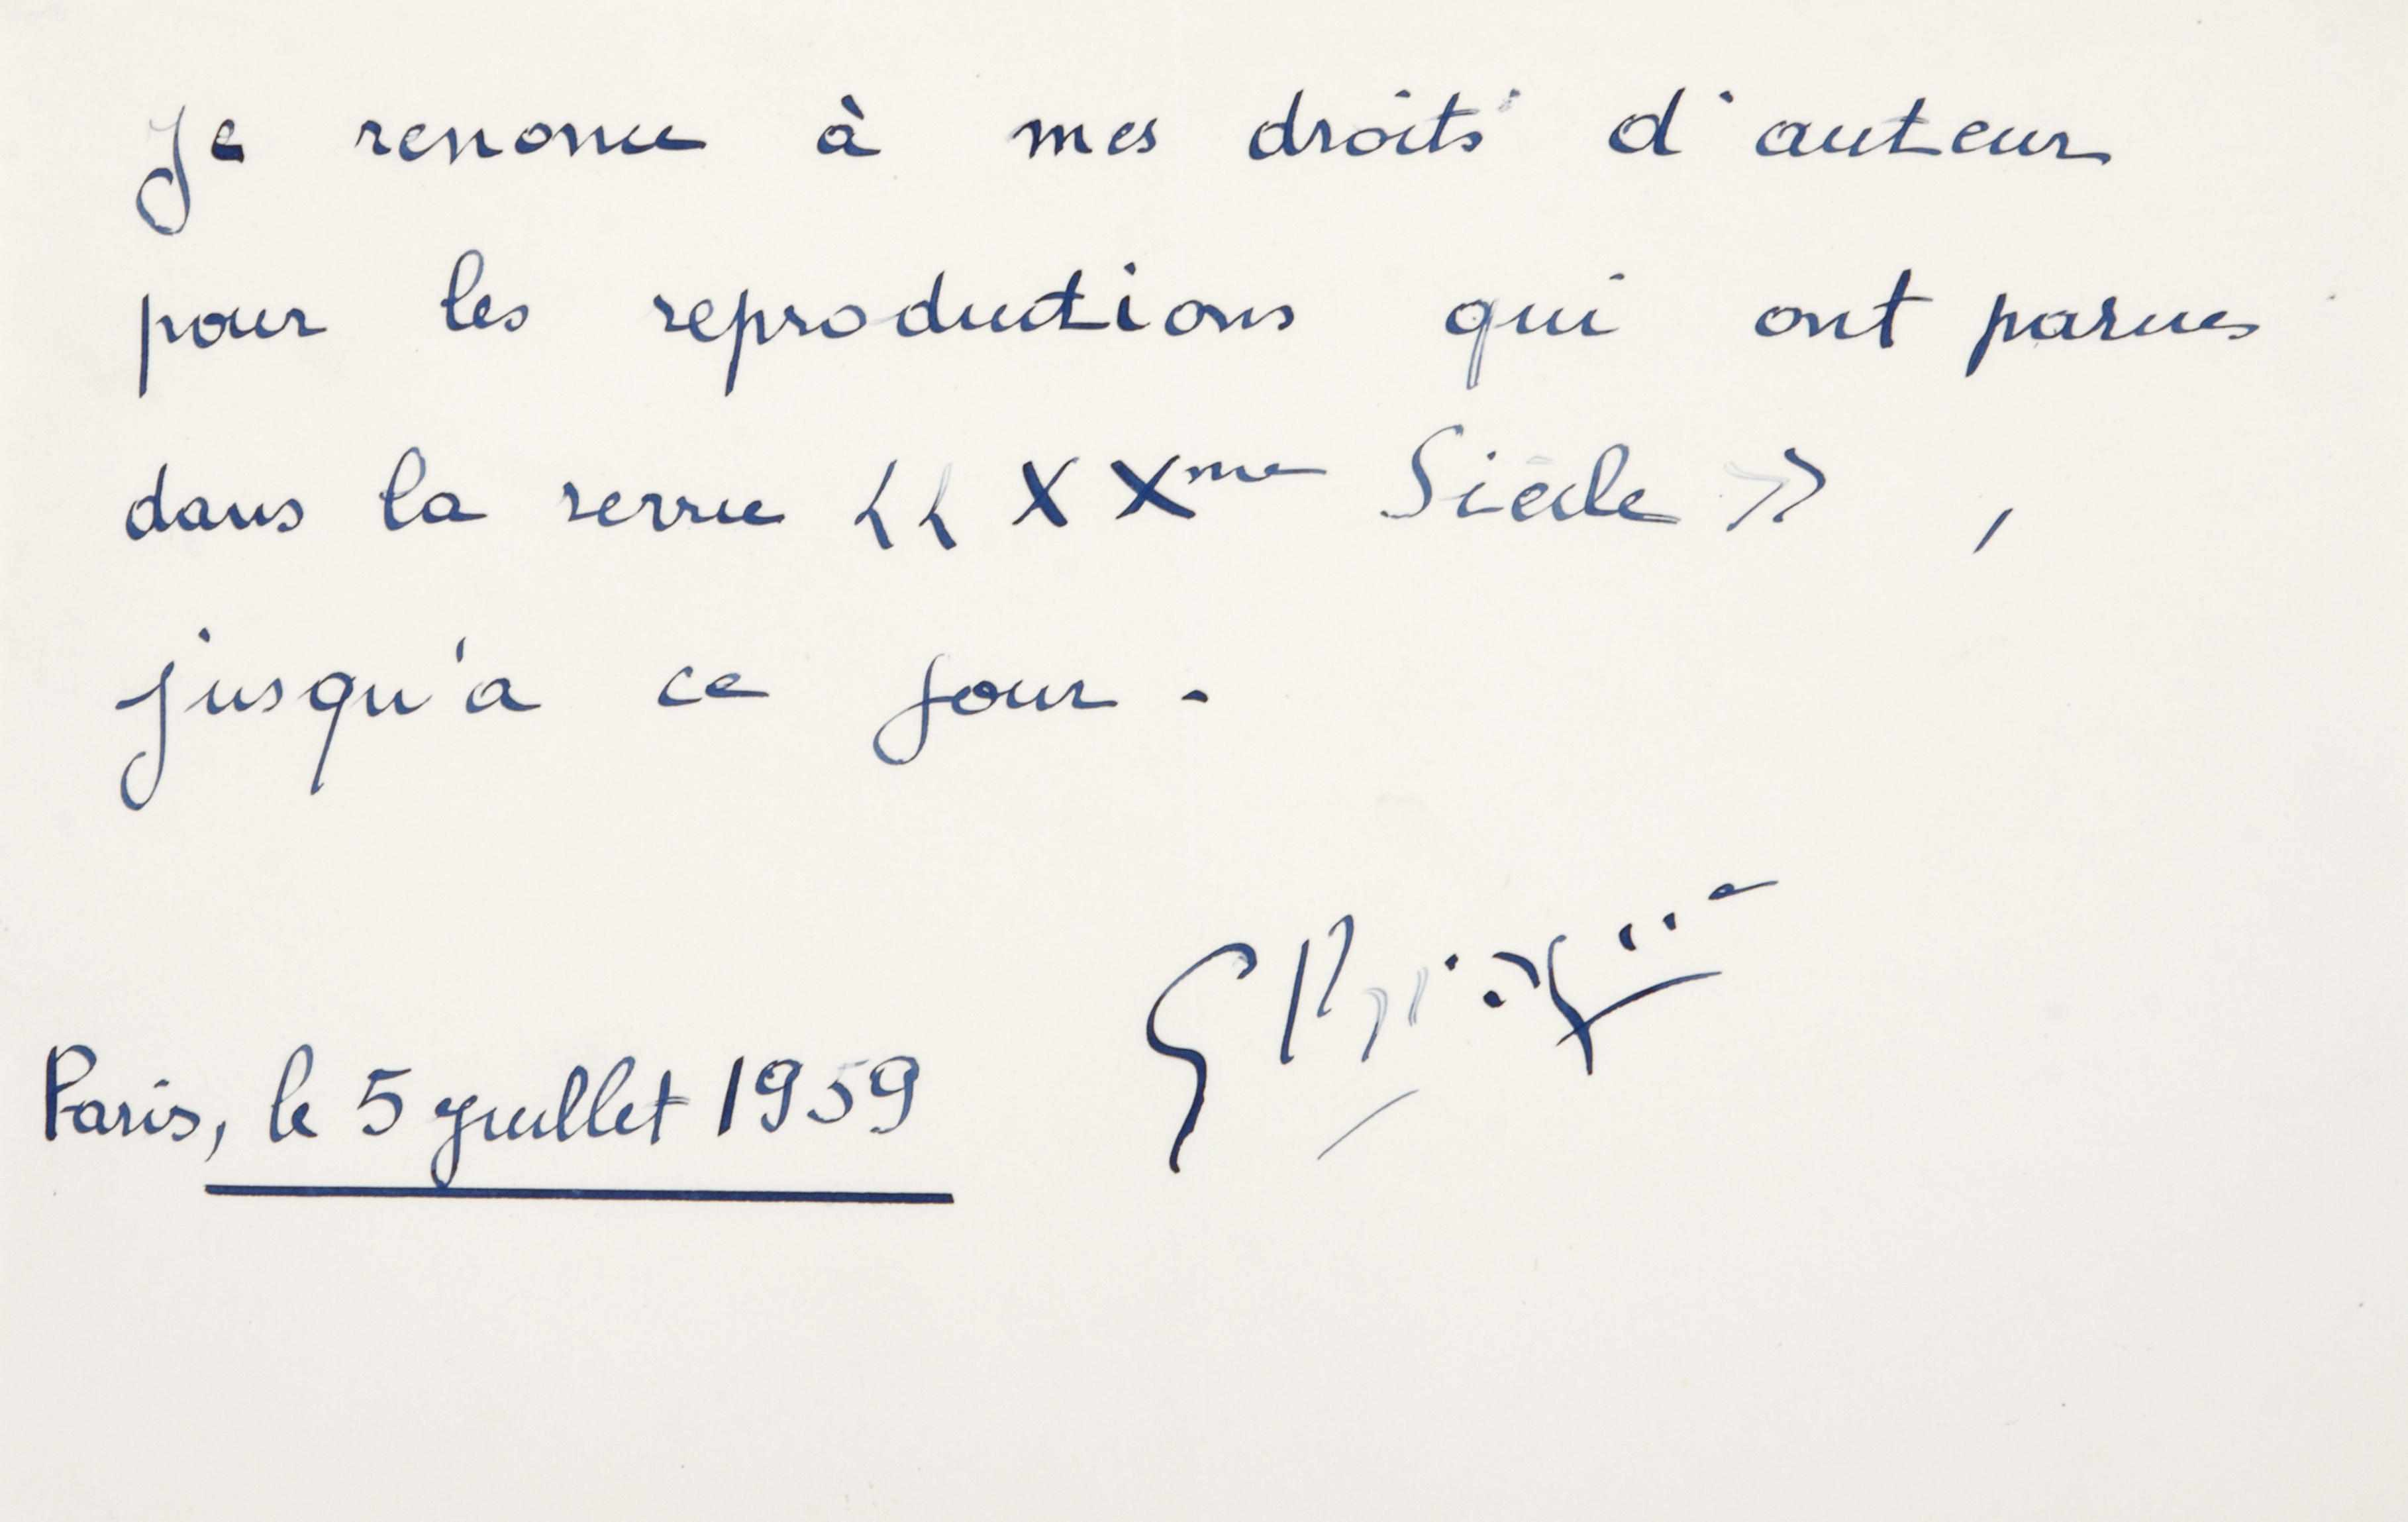 Je renonce à mes droits d'auteur
pour les reproductions qui ont parues
dans la revue << XXme Siècle >> ,
jusqu'a ce jour.
G Braque
Paris, le 5 juillet 1959